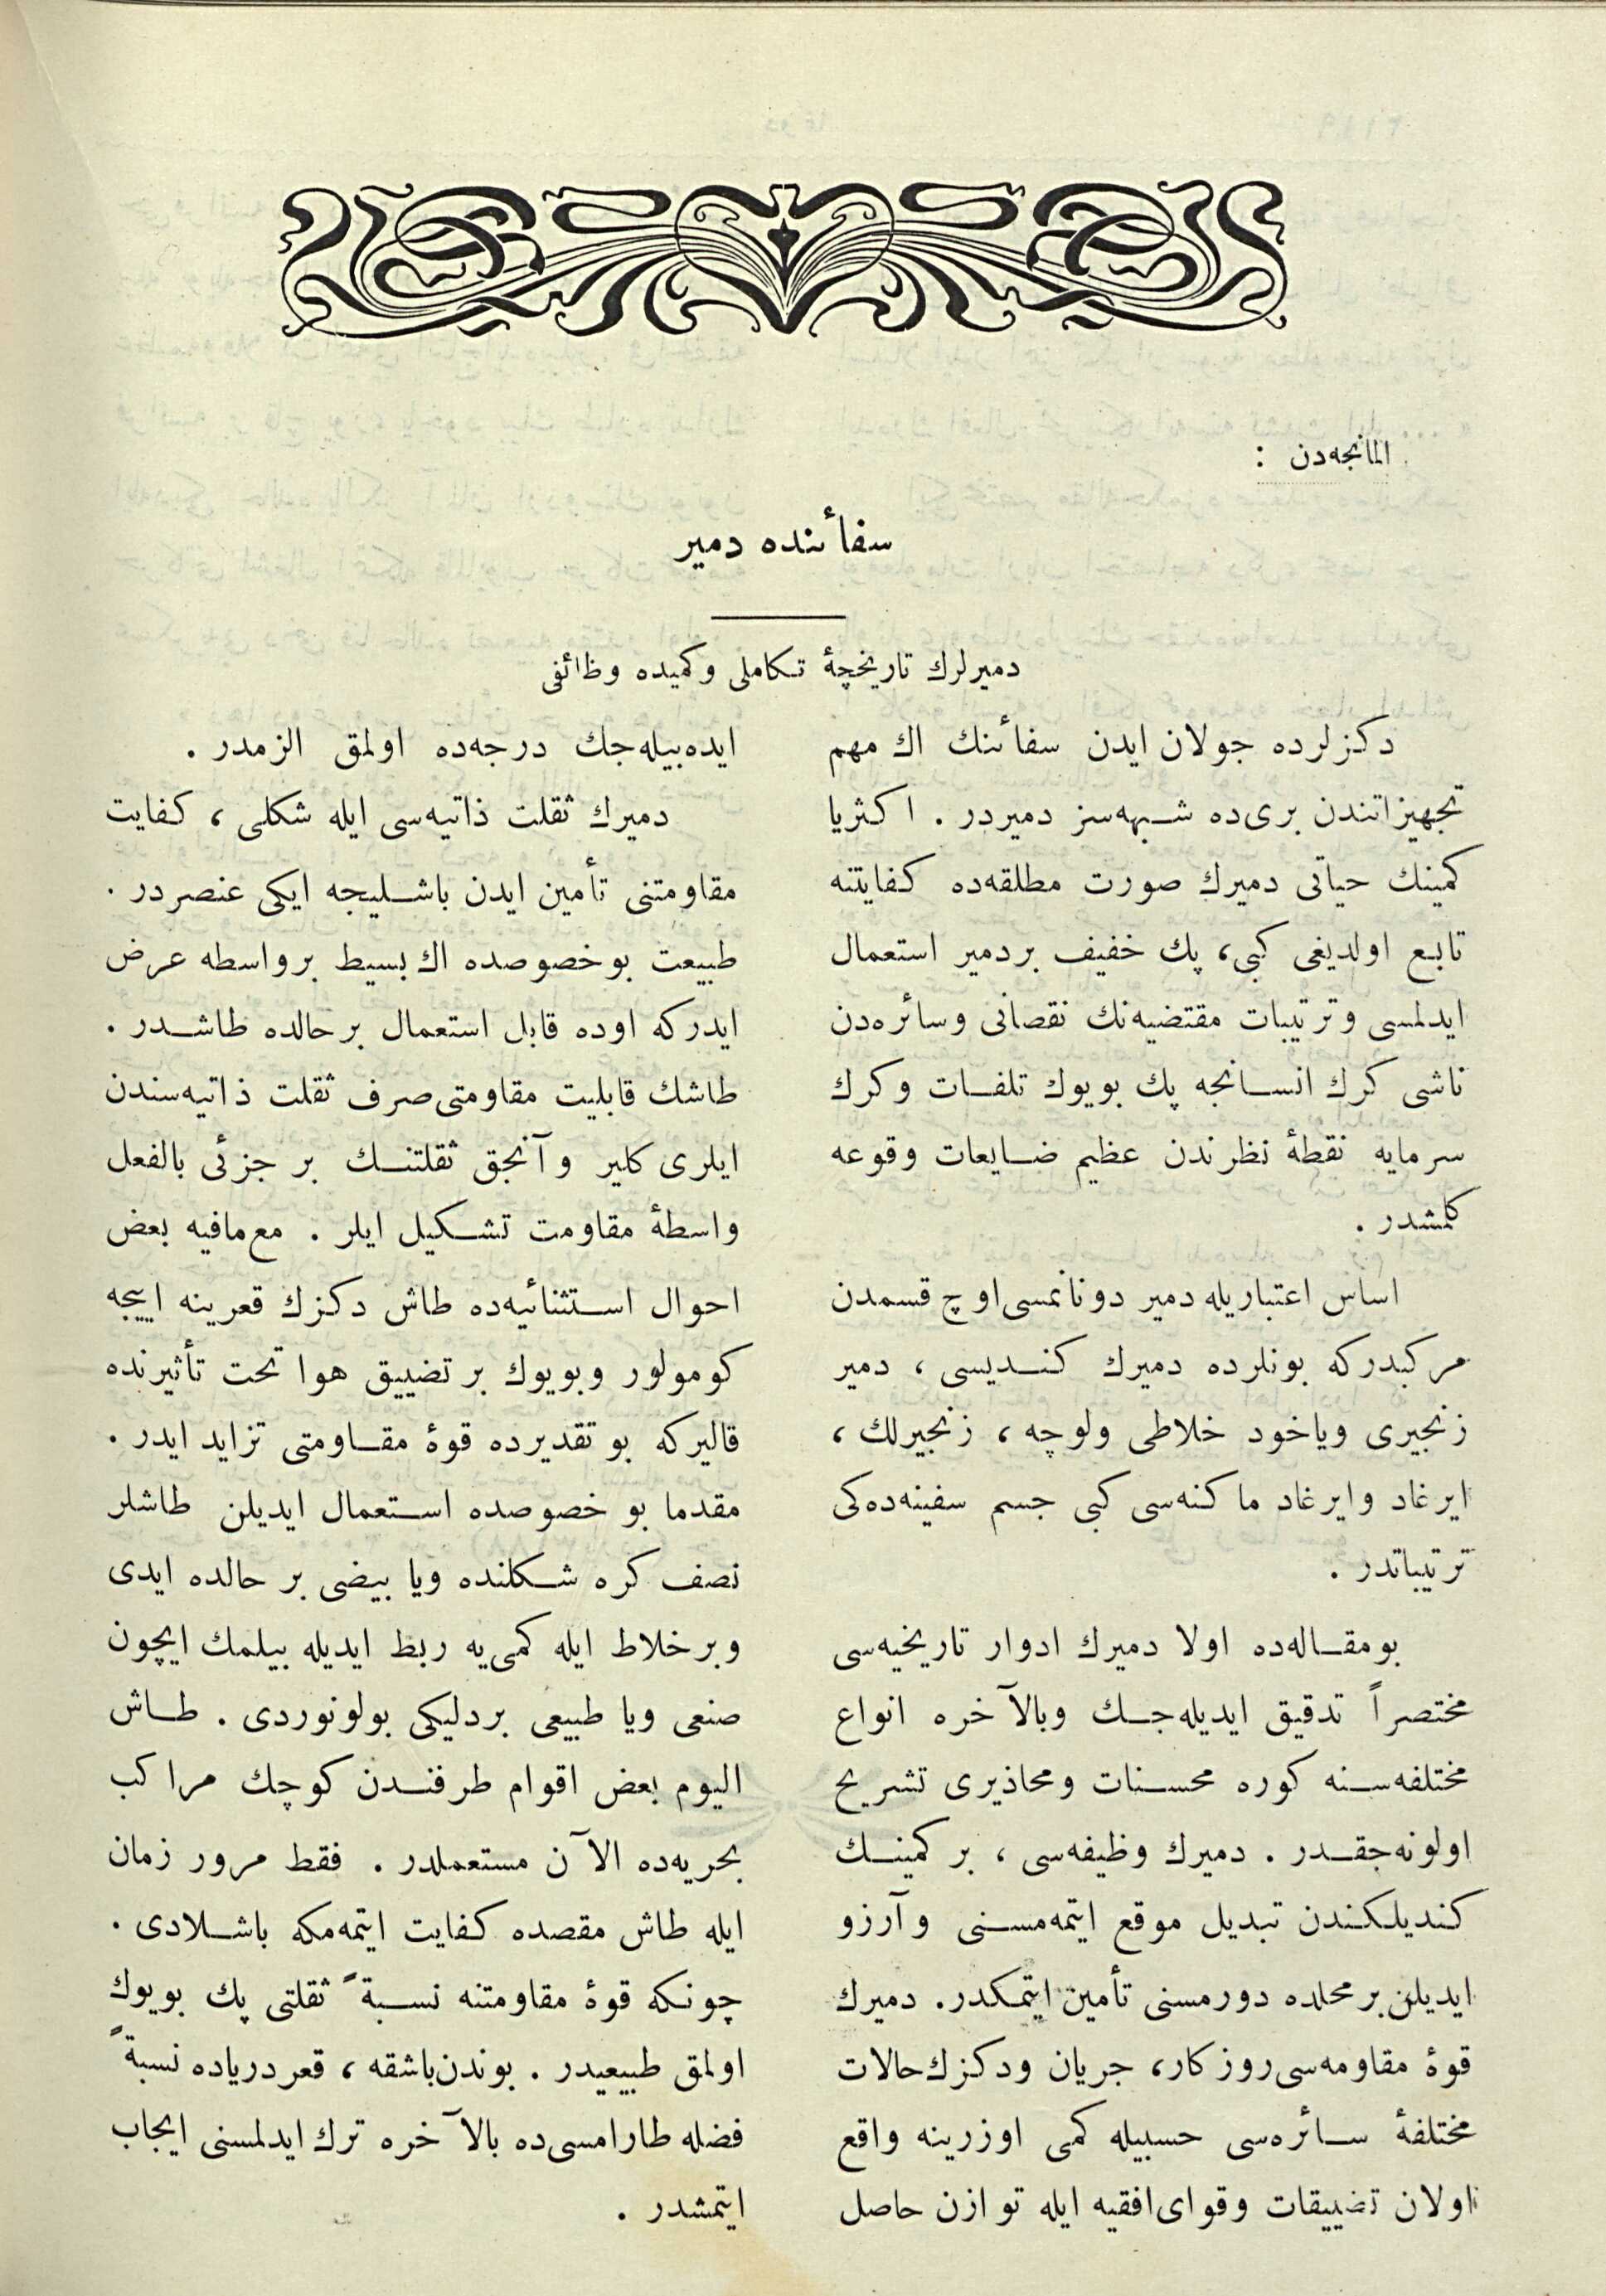 المانجه‌دن :
سفائنده دمیر
دمیرلرك تاریخچهٔ تكاملی وكمیده وظائفی
دكزلرده جولان ایدن سفائنك اك مهم
تجهیزاتندن بری‌ده شبهه‌سز دمیردر . اكثریا
كمینك حیاتی دمیرك صورت مطلقه‌ده كفایتنه
تابع اولدیغی كبی، پك خفیف بردمیر استعمال
ایدلمسی وترتیبات مقتضیه‌نك نقصانی وسائره‌دن
ناشی كرك انسانجه پك بویوك تلفات وكرك
سرمایه نقطهٔ نظرندن عظیم ضایعات وقوعه
كلشدر .
اساس اعتباریله دمیر دونانمسی اوچ قسمدن
مركبدركه بونلرده دمیرك كندیسی ، دمیر
زنجیری ویاخود خلاطی ولوچه ، زنجیرلك ،
ایرغاد وایرغاد ماكنه‌سی كبی جسم سفینه‌ده‌كی
ترتیباتدر .
بومقاله‌ده اولا دمیرك ادوار تاریخیه‌سی
مختصراً تدقیق ایدیله‌جك وبالآخره انواع
مختلفه‌سنه كوره محسنات ومحاذیری تشریح
اولونه‌جقدر . دمیرك وظیفه‌سی ، بر كمینك
كندیلكندن تبدیل موقع ایتمه‌مسنی وآرزو
ایدیلن بر محلده دورمسنی تأمین ایتمكدر. دمیرك
قوهٔ مقاومه‌سی روزكار، جریان ودكزك حالات
مختلفهٔ سائره‌سی حسبیله كمی اوزرینه واقع
اولان تضییقات وقوای افقیه ایله توازن حاصل
ایده‌بیله‌جك درجه‌ده اولمق الزمدر .
دمیرك ثقلت ذاتیه‌سی ایله شكلی ، كفایت
مقاومتنی تأمین ایدن باشلیجه ایكی عنصردر .
طبیعت بوخصوصده اك بسیط برواسطه عرض
ایدركه اوده قابل استعمال بر حالده طاشدر .
طاشك قابلیت مقاومتی صرف ثقلت ذاتیه‌سندن
ایلری كلیر وآنجق ثقلتنك بر جزئی بالفعل
واسطهٔ مقاومت تشكیل ایلر . مع‌مافیه بعض
احوال استثنائیه‌ده طاش دكزك قعرینه اییجه
كومولور وبویوك بر تضییق هوا تحت تأثیرنده
قالیركه بو تقدیرده قوهٔ مقاومتی تزاید ایدر .
مقدما بو خصوصده استعمال ایدیلن طاشلر
نصف كره شكلنده ویا بیضی بر حالده ایدی
وبرخلاط ایله كمی‌یه ربط ایدیله بیلمك ایچون
صنعی ویا طبیعی بردلیكی بولونوردی . طاش
الیوم بعض اقوام طرفندن كوچك مراكب
بحریه‌ده الآن مستعملدر . فقط مرور زمان
ایله طاش مقصده كفایت ایتمه‌مكه باشلادی .
چونكه قوهٔ مقاومتنه نسبةً ثقلتی پك بویوك
اولمق طبیعیدر . بوندن‌باشقه ، قعر دریاده نسبةً
فضله طارامسی‌ده بالآخره ترك ایدلمسنی ایجاب
ایتمشدر .